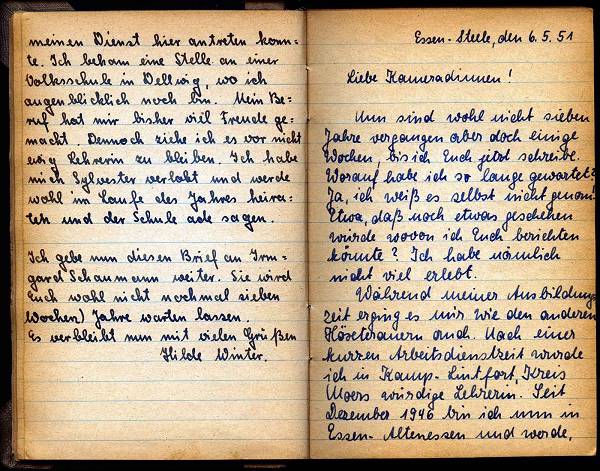 meinen Dienst hier antreten konn-
te. Ich bekam eine Stelle an einer
Volksschule in Dellwig, wo ich
augenblicklich noch bin. Mein Be-
ruf hat mir bisher viel Freude ge-
macht. Dennoch ziehe ich es vor nicht
ewig Lehrerin zu bleiben. Ich habe
mich Sylvester verlobt und werde
wohl im Laufe des Jahres heira-
ten und der Schule ade sagen.
Ich gebe nun diesen Brief an Irm-
gard Schaumann weiter. Sie wird
Euch wohl nicht nochmal sieben
(Wochen) Jahre warten lassen.
Es verbleibt nun mit vielen Grüßen
Hilde Winter.
Essen-Steele, den 6.5.51
Liebe Kameradinnen!
Nun sind wohl nicht sieben
Jahre vergangen aber doch einige
Wochen, bis ich Euch jetzt schreibe.
Worauf habe ich so lange gewartet?
Ja, ich weiß es selbst nicht genau!
Etwa, daß noch etwas geschehen
würde wovon ich Euch berichten
könnte? Ich habe nämlich
nicht viel erlebt.
Während meiner Ausbildungs
zeit erging es mir wie den anderen
Hösteranern auch. Nach einer
kurzen Arbeitsdienstzeit wurde
ich in Kamp-Lintfort, Kreis
Moers würdige Lehrerin. Seit
Dezember 1946 bin ich nun in
Essen-Altenessen und werde,